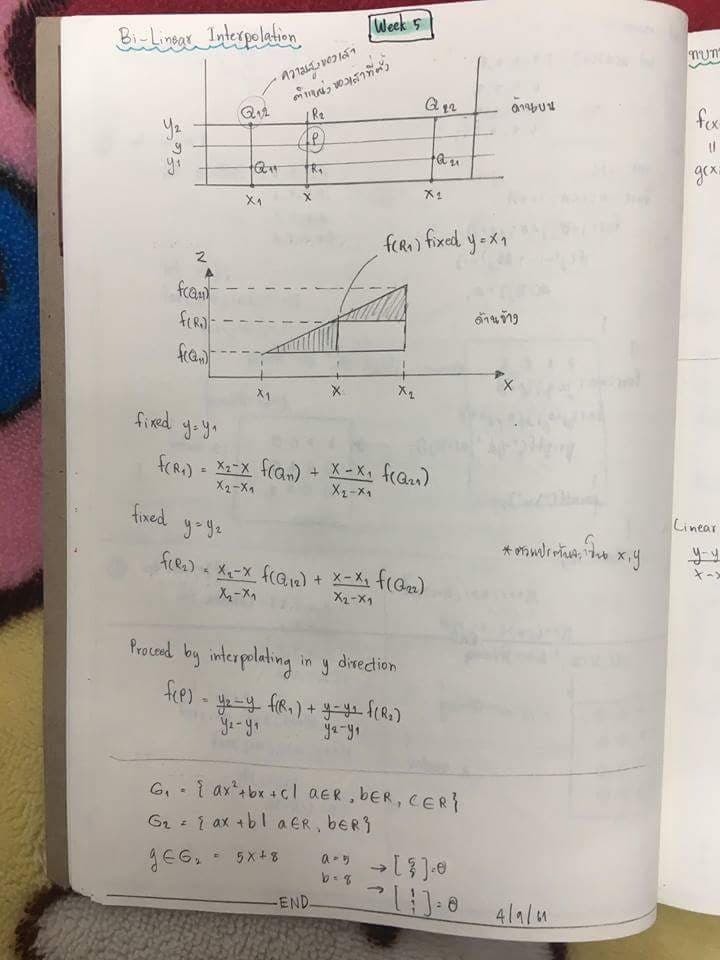 Bi-Linear Interpolation
Week 5
ความสูงของเสา
ตำแหน่งของเสาที่ตั้ง
Q12 R2 Q22 ด้านบน
y2
y P
y1 Q11 R1 Q21
x1 x x2
f(R1) fixed y = x1
z
f(Q21)
f(R1) ด้านข้าง
f(Q11)
x1 x x2 x
fixed y = y1
f(R1) = (x2-x)/(x2-x1) f(Q11) + (x-x1)/(x2-x1) f(Q21)
fixed y = y2
* x, y
f(R2) = (x2-x)/(x2-x1) f(Q12) + (x-x1)/(x2-x1) f(Q22)
Proceed by interpolating in y direction
f(P) = (y2-y)/(y2-y1) f(R1) + (y-y1)/(y2-y1) f(R2)
G1 = { ax²+bx+c | a∈R, b∈R, c∈R }
G2 = { ax+b | a∈R, b∈R }
g∈G2 = 5x+8 a=5 → =θ
b=8 → =θ
END
4/9/61
f(x
||
g(x
Linear
y-y
x-x